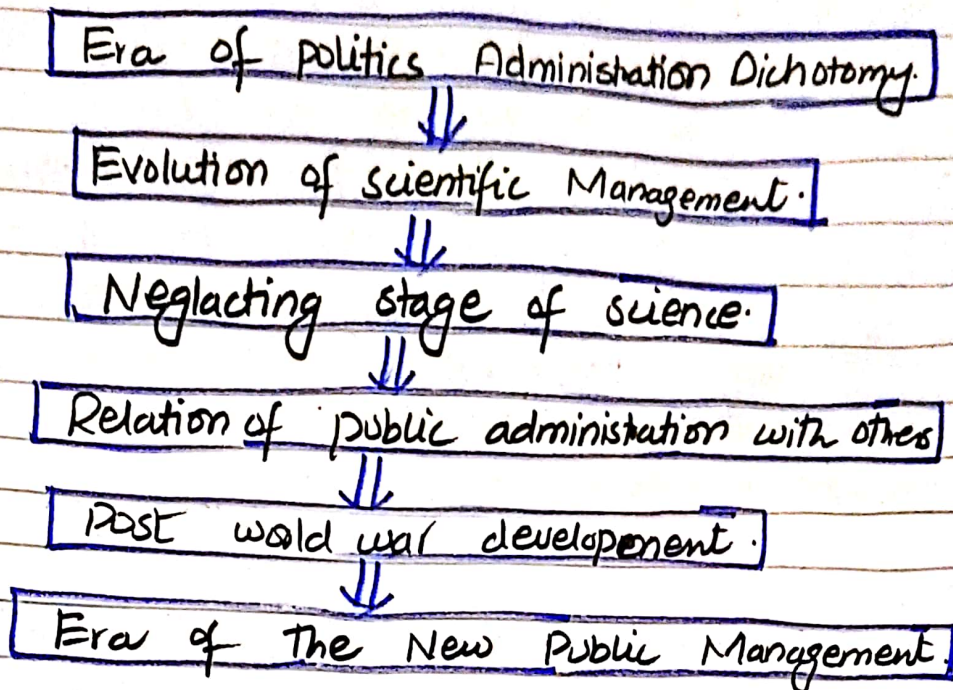 Era of politics Administration Dichotomy.
Evolution of scientific Management.
Neglacting stage of science.
Relation of public administration with others
Post world war developement.
Era of The New Public Management.